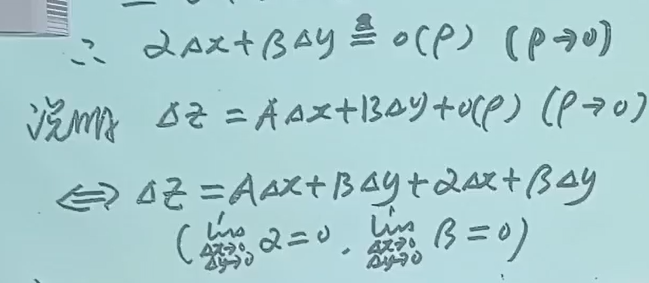 ∴ αΔx+βΔy ≜ o(ρ) (ρ→0)
说明 ΔZ = AΔx+BΔy+o(ρ) (ρ→0)
⇔ ΔZ = AΔx+BΔy+αΔx+βΔy
(lim Δx→0 Δy→0 α=0, lim Δx→0 Δy→0 β=0)